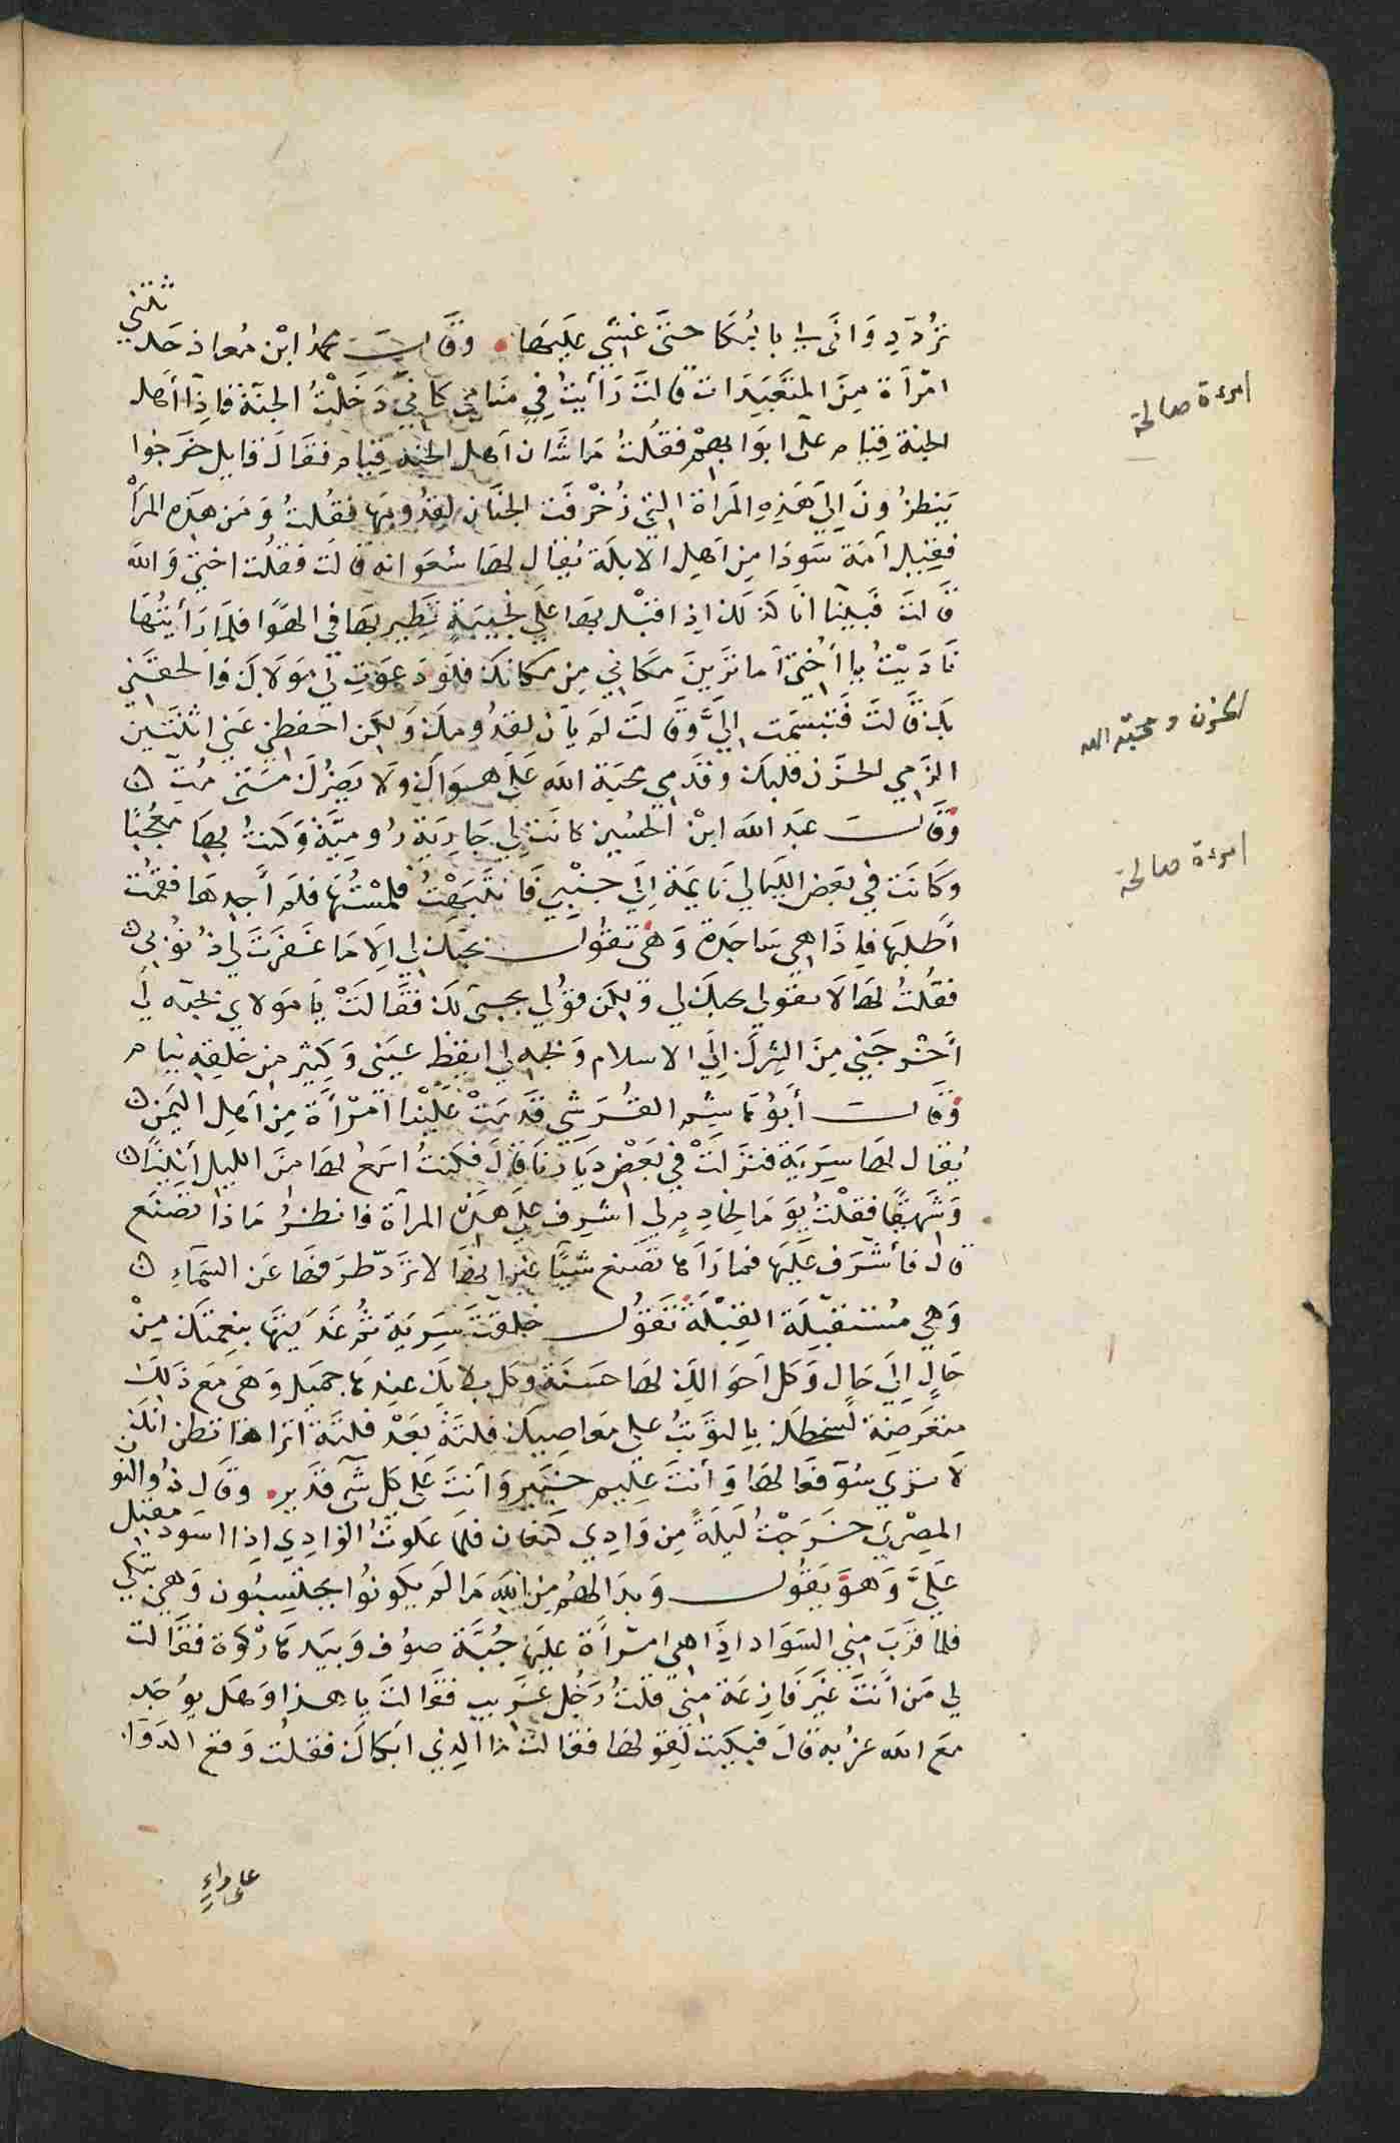 تُردّدِ وَانَّى لي بالبُكَا حتىَ غشي عليهَا • وقَالت محمد ابْن مُعاذ حَدثتني
امْرأة مِنَ المتعَبدَات قالتَ رَأيتُ فِي مَنامي كَاني دَخلتُ الجنة فإذآ أهل
الجنة قِيام علَى ابوَابهمْ فقلتُ مَا شَان اهل الجنه قِيام فقَالَ قايل خرجُوا
يَنظرُونَ اِليَ هَذِهِ المَراة التي زُخْرفَت الجنَان لقدُومِهَا فقُلتُ وَمَن هذه المرأ
فقِيل أمَة سَودَا مِن اَهلِ الابلَة يُقال لهَا شعوانه قالت فقلُت اختي وَالله
قَالتَ فَبينَا انَا كذلكَ اذ اقبل بهَا عَلي نجيبَةٍ تَطِير بهَا في الهوَا فلما رَأيتُهَا
نَادَيْتُ يا أُختي أما ترَينَ مكَاني مِن مكانكَ فلَو دَعوَتِ لي مَولاكَ فالحقَني
بكَ قالَتَ فتبسَمت اِليَّ وَقالَتَ لم يَان لقدُومكَ وَلكن احفظِي عَني اثنتَين
الزَمي الحزن قلبكَ وقدمي محبَة الله عَلَى هَوَاكَ ولا يَضرُكَ مَتى مُتِّ ن
وَقَالت عبَد الله ابنْ الحسَين كانَت لِي جَاريَة رُوميَّة وَكنتُ بهَا مُعجبًا
وكَانتَ في بعَض الليَالي نَايمَة اِلىَ جنْبِي فَانتَبَهتُ فلمسْتُهَا فلم أجدهَا فقمُت
أطلبهَا فاذَا هي سَاجدة وَهي تقوُل بحبك لي اِلا مَا غَفرتَ لي ذنوُبي ن
فقلُتُ لهَا لا تقوَلي بحبكَ لي وَلِكن قوُلي بحبي لكَ فقَالتَْ يَا مَولاي بحبه لي
أخْرجَني مِنَ الشِركَ اِلىَ الاسلام وَبحبه لي ايقظ عَيني وَكثير من خلقِهِ نيام
وَقَالت أبوُ هَاشِم القُرَشي قَدمَتْ عَليْنا امْرأة مِن أهل اليَمَن ن
يُقال لهَا سِرَيَة فنزلتَْ في بَعْض دِيَارنَا قال فكنتُ اسَمعُ لهَا منَ الليل أنينًا ن
وَشَهيقًا فقلْتُ يوَمَا لخادِم لِي اشرِف علي هذه المرأة فانظرُ مَاذا تصَنَع
قال فأشرَف عليَهَا فما رَاَها تصَنع شَيئًا غيَر انهَا لا ترَدّ طرَفهَا عَن السَّمَاءِ ن
وَهي مُستقبلَة القِبْلَة تَقوُل خلقتَ سِرَيَة ثم غَذيتهَا بنِعمتكَ مِنْ
حَالٍ اِلىَ حَال وَكل اَحوَالكَ لهَا حَسَنَة وَكل بلايكَ عندهَا جميَل وَهي مَع ذلكَ
متعَرضة لسَخطكَ بالتوَثبُ علي مَعاصِيكَ فلتَة بَعدْ فلتَة اترَاهَا تظن انكَ
لا ترَى سُوء فعَالهَا وَأنتَ عَليم خَبير وَأنتَ عَلى كل شَي قَدير • وقَال ذُو النو
المصْري خرَجْتُ لَيلَةً مِن وَادِي كنعَان فلما عَلوَتُ الوَادِي اِذا اسَوَد مقبل
عَليَّ وَهوَ يَقوُل وَبدَا لهُم مِن الله مَا لم يكوُنوُا يَحتَسِبُون وَهي تبكي
فلما قرَبَ مِني السَوَاد اِذا هي امرَأة عَليهَا جُبَّة صوُف وَبيَدهَا رَكوَة فقَالت
لي مَن أنتَ غَير فَازعَة مِني قلتُ رَجُل غرَيب فقَالتَ يا هذا وَهَل يوُجَد
مَع الله غربُه قالَ فبكيَت لقولهَا فقالتَ مَا الذي ابكَاكَ فقلتُ وَقع الدوَا
على داءٍ
امرءة صالحة
الحزن ومحبّه الله
امرءة صالحة